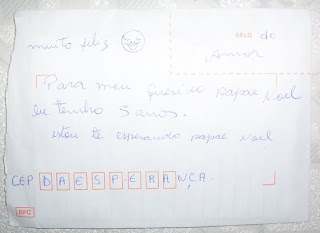 muito feliz
SELO do
Amor
Para meu querido papae Noel
eu tenho 5 anos.
estou te esperando papae Noel
CEP DA ESPERANÇA.
RPC